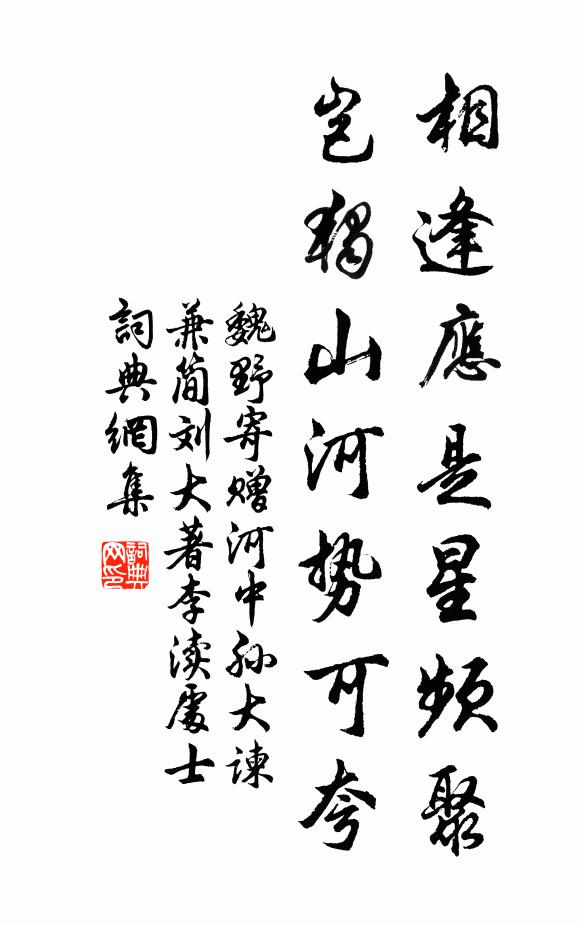 相逢應是星頻聚
岂獨山河势可夸
魏野寄赠河中孙大諫
兼简刘大著李渎處士
詞典網集
詞典
网印